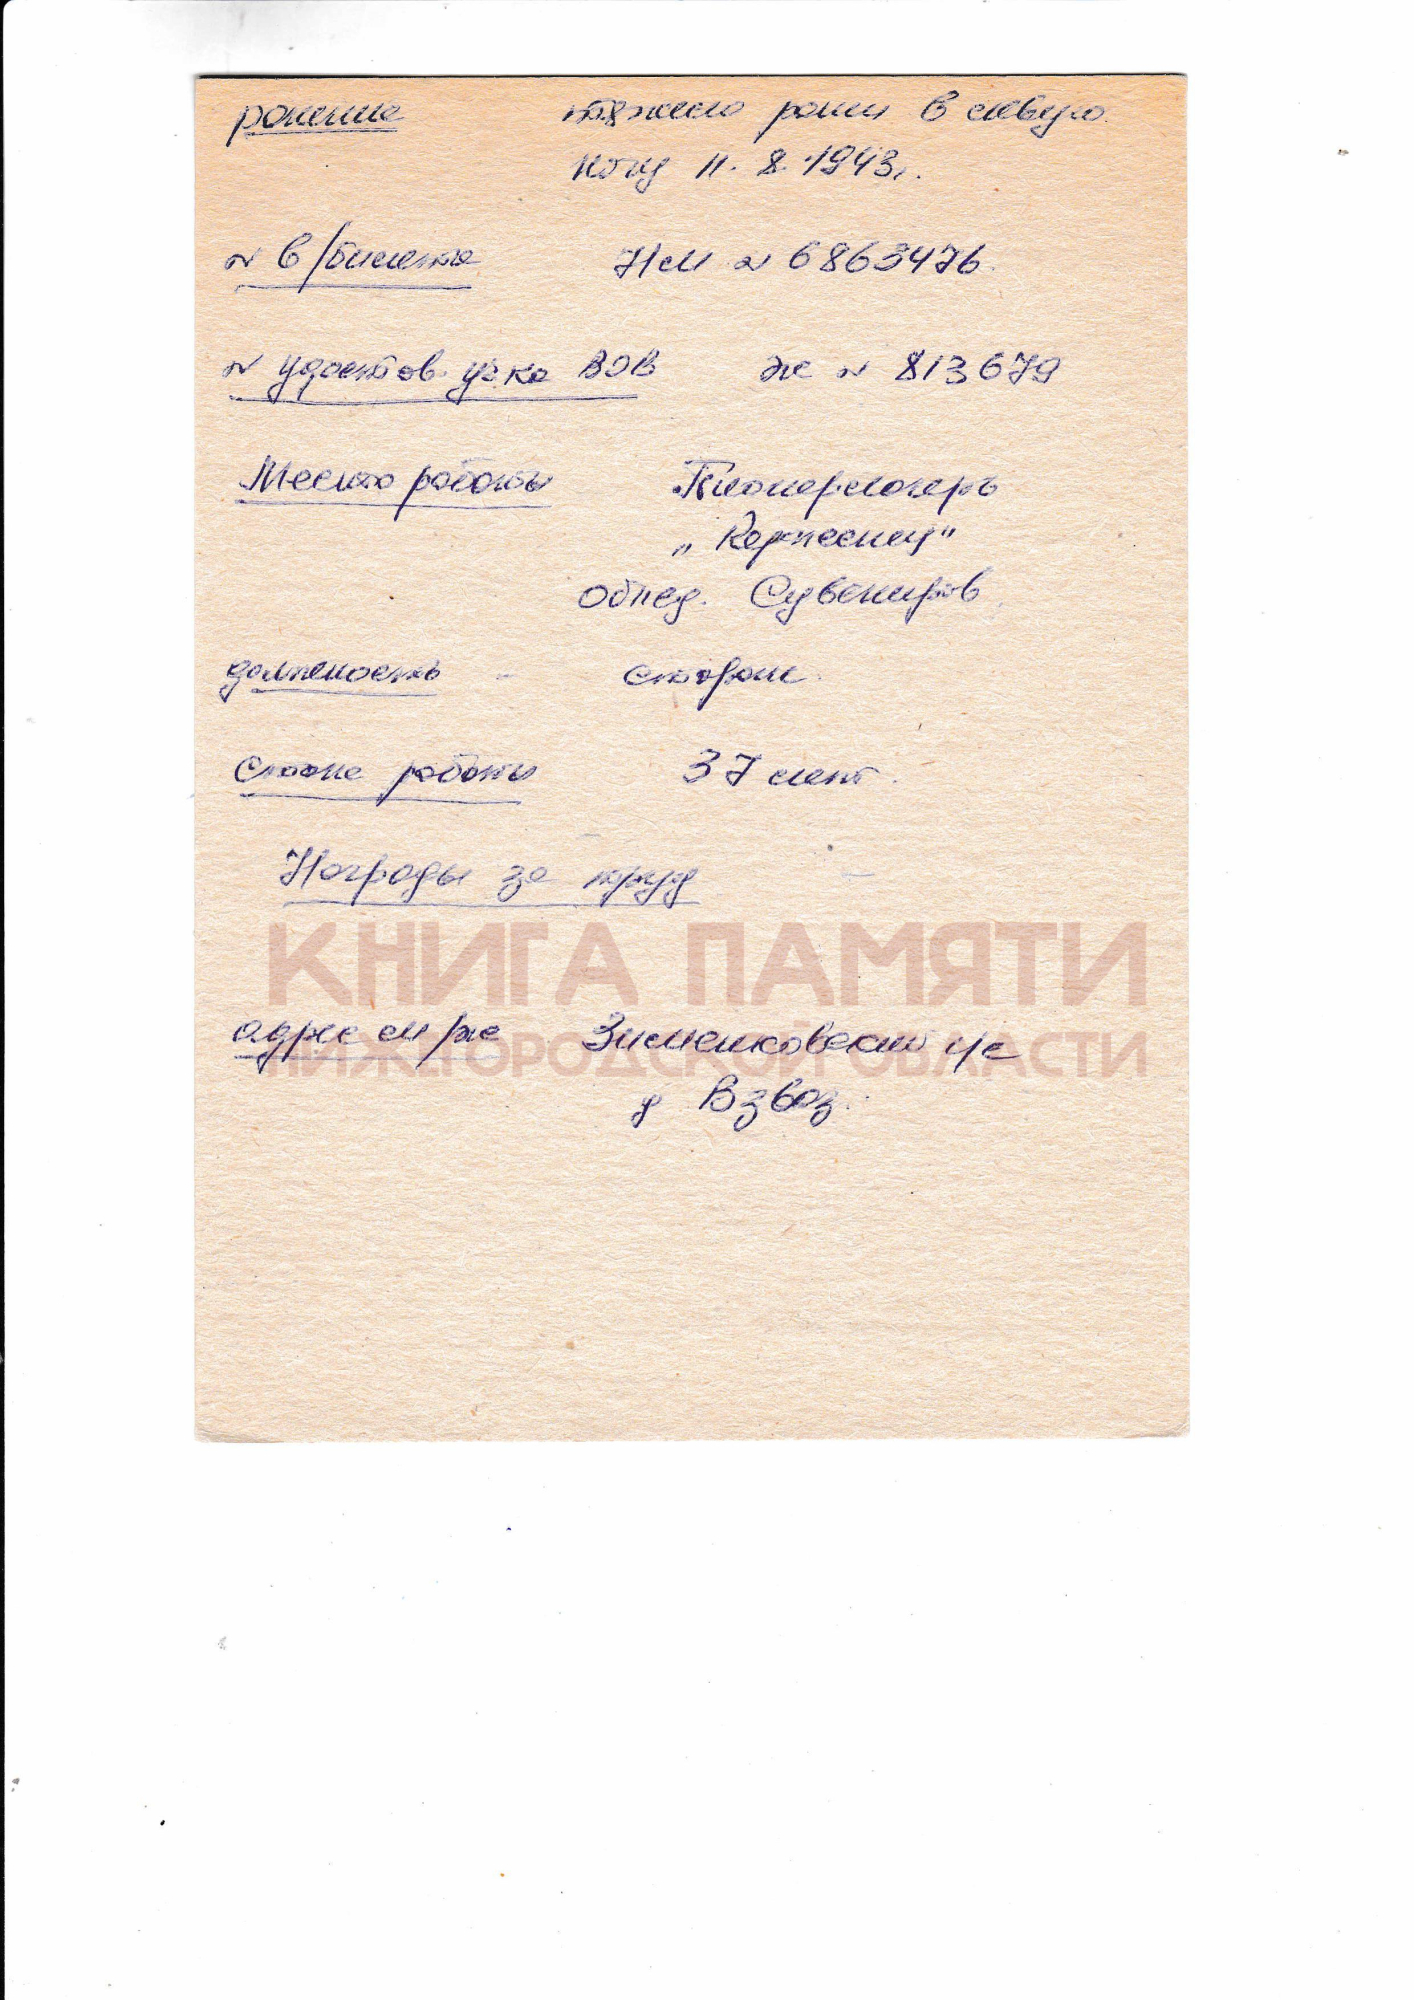 ранение тяжело ранен в левую
ногу 11.8.1943г.
N в/билета НМ N 6863476.
N удостов. уч-ка ВОВ Ж N 813679
Место работы Пионерлагерь
„Керженец"
Объед. Сувениров
должность - сторож.
Стаж работы 37 лет.
Награды за труд -
КНИГА ПАМЯТИ
НИЖЕГОРОДСКОЙ ОБЛАСТИ
адрес м/ж Зименковский с/с
д Взвоз.